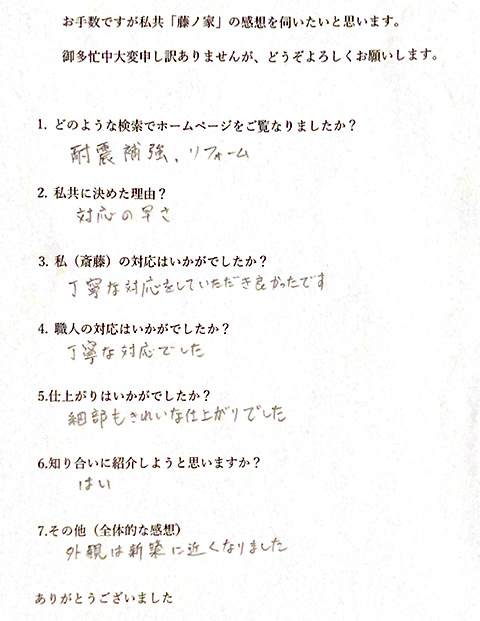 お手数ですが私共「藤ノ家」の感想を伺いたいと思います。
御多忙中大変申し訳ありませんが、どうぞよろしくお願いします。
1. どのような検索でホームページをご覧なりましたか？
耐震補強、リフォーム
2. 私共に決めた理由？
対応の早さ
3. 私（斎藤）の対応はいかがでしたか？
丁寧な対応をしていただき良かったです
4. 職人の対応はいかがでしたか？
丁寧な対応でした
5.仕上がりはいかがでしたか？
細部もきれいな仕上がりでした
6.知り合いに紹介しようと思いますか？
はい
7.その他（全体的な感想）
外観は新築に近くなりました
ありがとうございました